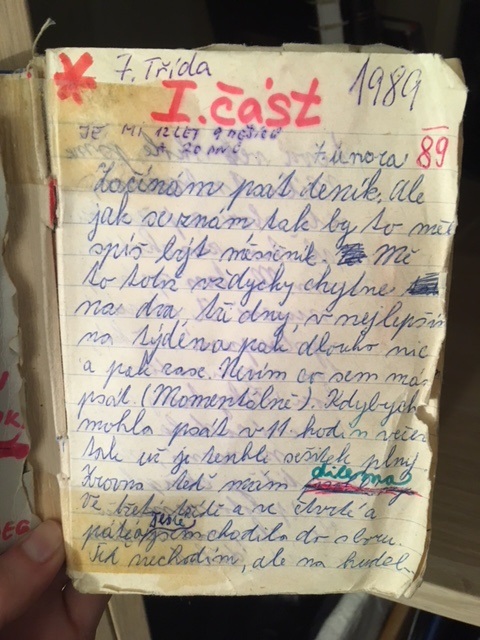 7. Třída
1989
I. část
JE MI 12 LET 9 MĚSÍCŮ
A 20 DNŮ
7. února 89
Začínám psát deník. Ale
jak se znám tak by to měl
spíš být měsíčník. Mě
to totiž vždycky chytne
na dva, tři dny, v nejlepším
na týden a pak dlouho nic
a pak zase. Nevím co sem mam
psát. (Momentálně). Kdybych
mohla psát v 11 hodin večer
tak už je tenhle sešitek plný
Zrovna teď mám dilemna
Ve třetí třídě a ve čtvrté a
páté jsem ještě chodila do sboru.
Teď nechodím, ale na hudeb